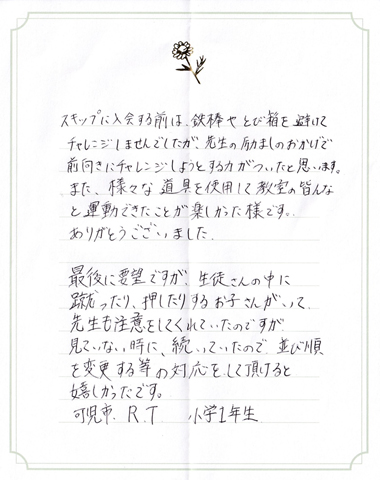 スキップに入会する前は、鉄棒やとび箱を避けて
チャレンジしませんでしたが、先生の励ましのおかげで
前向きにチャレンジしようとする力がついたと思います。
また、様々な道具を使用して教室の皆んな
と運動できたことが楽しかった様です。
ありがとうございました。
最後に要望ですが、生徒さんの中に
蹴だったり、押したりするお子さんがいて、
先生も注意をしてくれていたのですが
見ていない時に、続いていたので、並び順
を変更する等の対応をして頂けると
嬉しかったです。
可児市. R.T 小学1年生